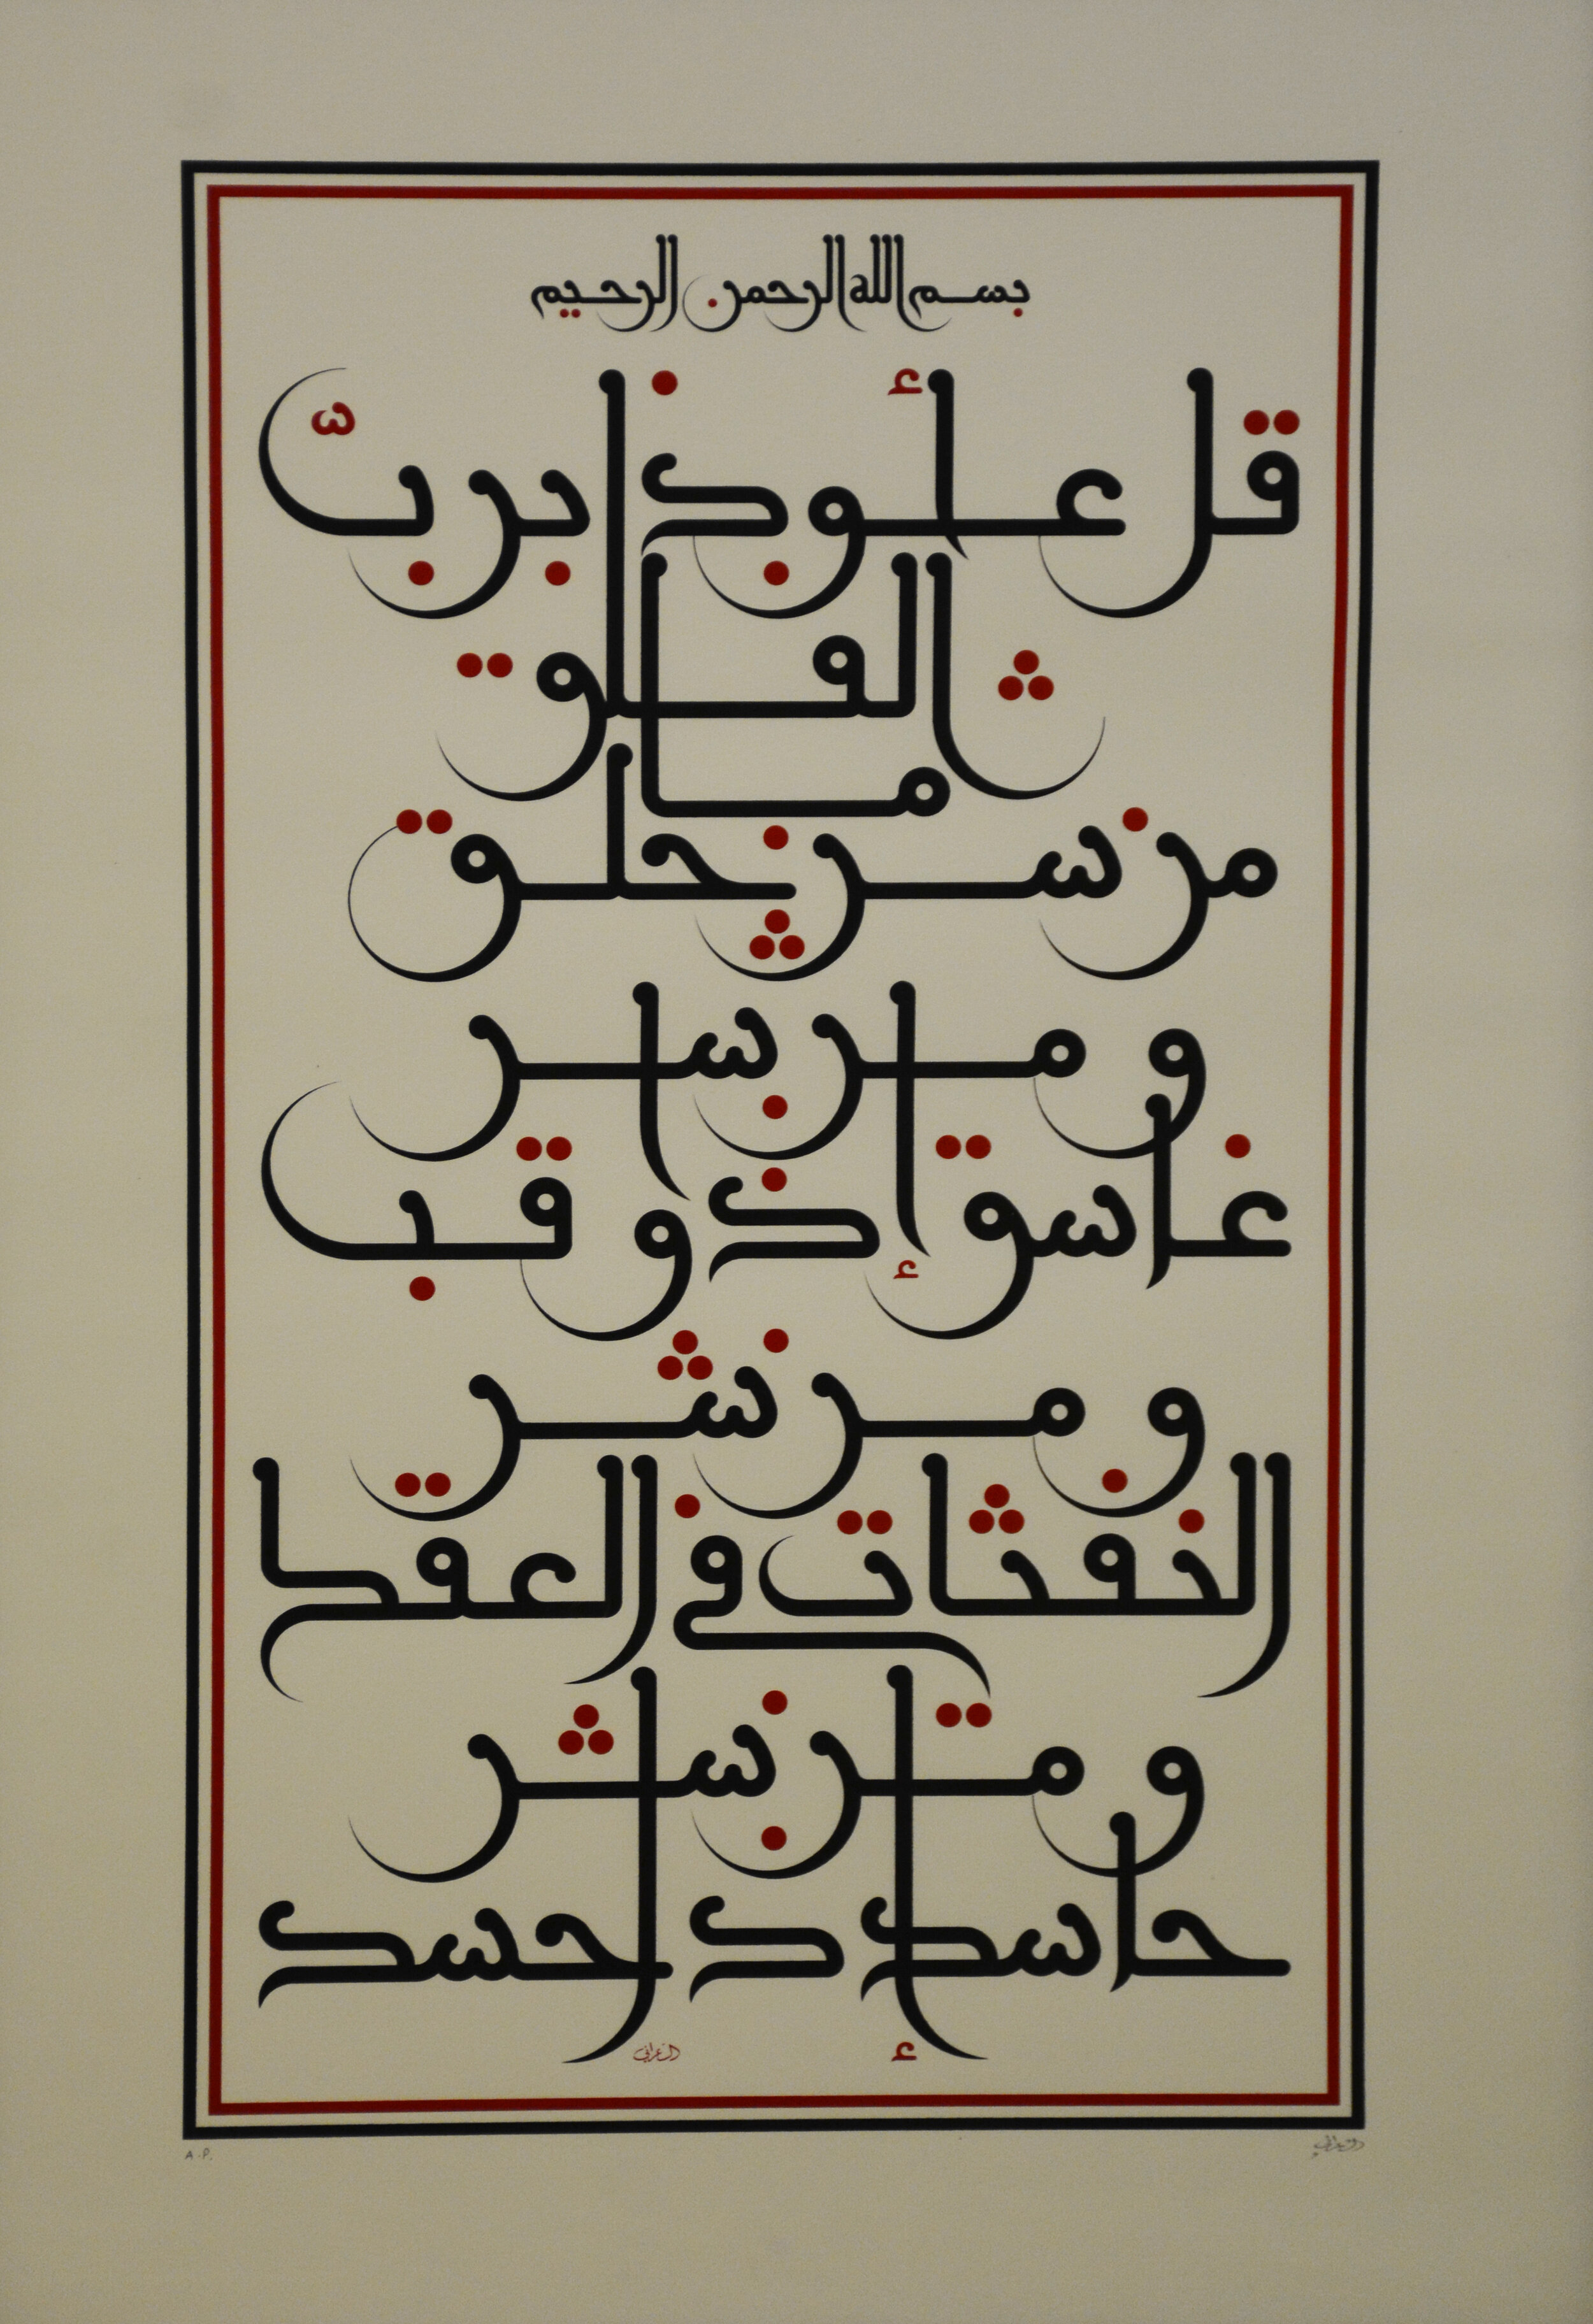 بسم الله الرحمن الرحيم
قل أعوذ برب
الفلق
من شر ما خلق
و من شر
غاسق إذا وقب
و من شر
النفثات في العقد
و من شر
حاسد إذا حسد
A.P.